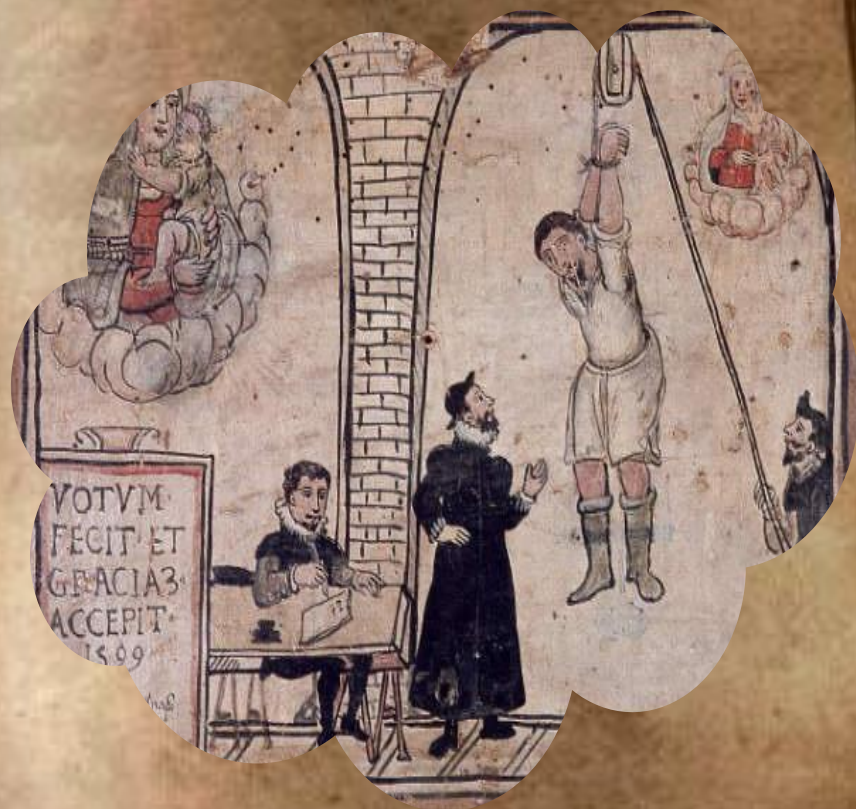 VOTVM
FECIT ET
GRACIA3
ACCEPIT
1599